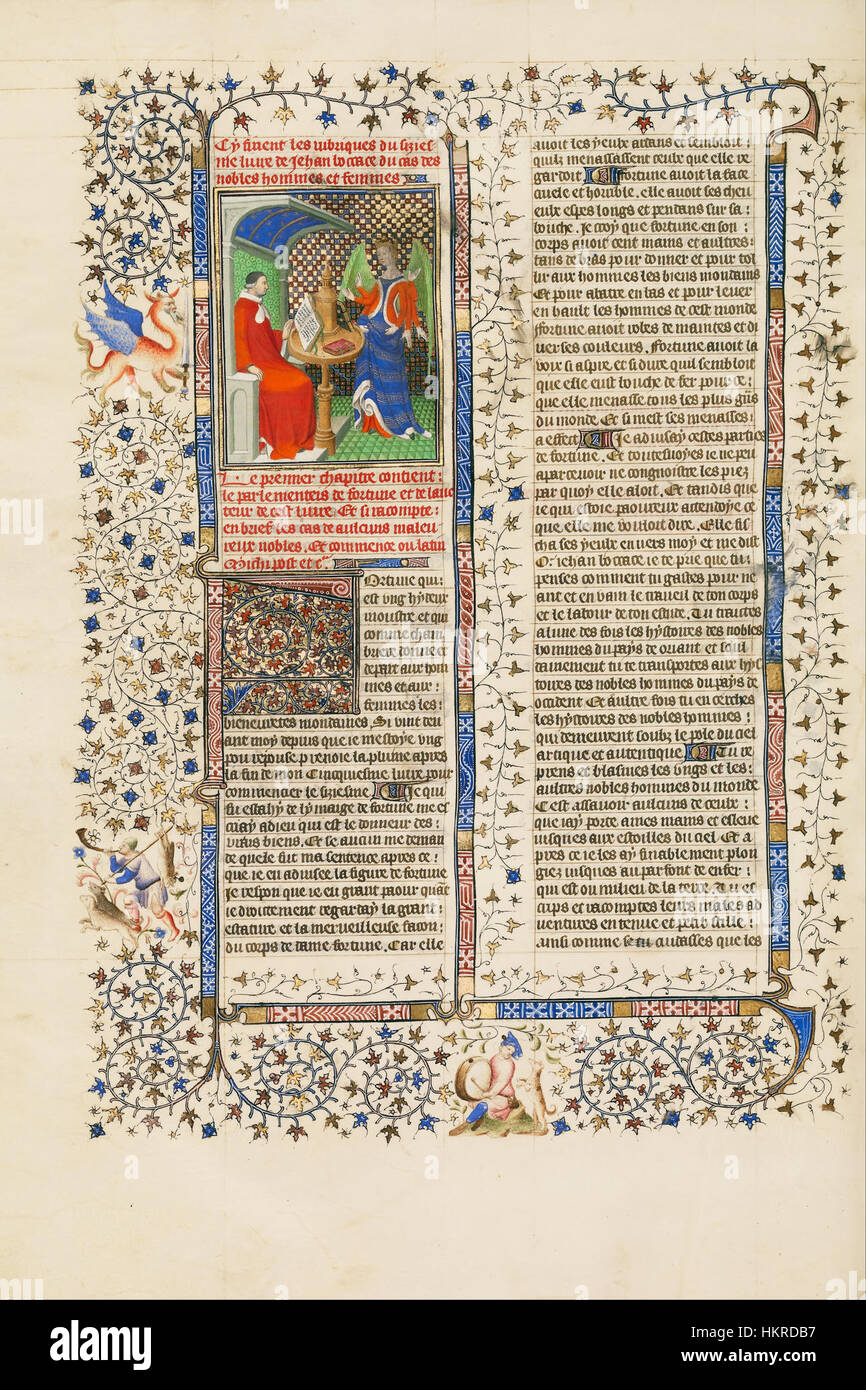 Cy finent les rubriques du sizies
me livre de Jehan bocace du cas des
nobles hommes et femmes
Le premier chapitre contient
le parlement de fortune et de lauc
teur de cest livre. Et si racompte
en brief les cas de aulcuns maleu
reux nobles. Et commence ou latin
Ortune qui
est ung hydeux
monstre et qui
comme cham
briere donne et
depart aux hom
mes et aux
femmes les
bieneuretes mondaines. Si vint dev
ant moy depuis que ie mestoye ung
pou repose prenoie la plume apres
la fin de mon Cinquiesme livre pour
commencier le siziesme Je qui
fu esbahy de lymaige de fortune me es
criay a dieu qui est le donneur des
vrais biens. Et se aucun me deman
de quele fut ma sentence apres ce
que ie eu advisee la figure de fortune
Je respon que ie eu grant paour quāt
ie droitement regarday la grant
estature et la merveilleuse facon
du corps de dame fortune. Car elle
avoit les yeulx ardans et sembloit
quilz menassassent ceulx que elle re
gardoit fortune avoit la face
cruele et horrible. elle avoit ses chev
eulx espes longs et pendans sur sa
bouche. Je croy que fortune en son
corps avoit cent mains et aultres
tans de bras pour donner et pour tol
lir aux hommes les biens mondains
Et pour abatre en bas et pour lever
en hault les hommes de cest monde
fortune avoit robes de maintes et di
verses couleurs. fortune avoit la
voix si aspre et si dure quil sembloit
que elle eust bouche de fer pour ce
que elle menasse tous les plus grās
du monde. Et si mest ses menasses
a effect Je advisay cestes parties
de fortune. Et toutesvoyes ie ne peu
apartevoir ne congnoistre les piez
par quoy elle aloit. Et tandis que
ie qui estoie paoureux attendoye ce
que elle me vouloit dire. Elle fi
cha ses yeulx envers moy et me dist
O iehan bocace ie te prie que tu
penses comment tu gastes pour ne
ant et en vain le traveil de ton corps
et le labour de ton estude. Tu traictes
alune des fois les hystoires des nobles
hommes du pays de oriant et soub
dainement tu te transportes aux hys
toires des nobles hommes du pays de
occident Et aultre fois tu encerches
les hystoires des nobles hommes
qui demeurent soubz le pole du ciel
artique et autentique Tu re
prens et blasmes les ungs et les
aultres nobles hommes du monde
Cest assavoir aulcuns de ceulx
que iay porte a mes mains et esleve
iusques aux estoilles du ciel Et a
pres ce ie les ay finablement plon
giez iusques au parfont de enfer
qui est ou milieu de la terre. Tu es
crips et racomptes leurs males ad
ventures en tenue et petit stille
ainsi comme se tu cuidasses que les
alamy
alamy stock photo
HKRDB7
www.alamy.com